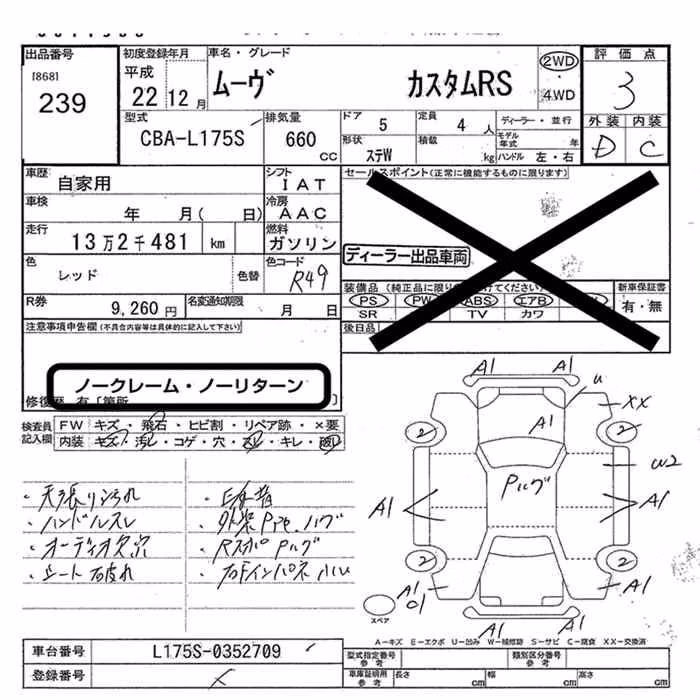 出品番号
[868]
239
初度登録年月
平成
22年12月
車名・グレード
ムーヴ カスタムRS
2WD
4WD
評価点
3
外装 内装
D C
型式
CBA-L175S
排気量
660 CC
ドア 5
定員 4 人
ディーラー・並行
形状 ステW
積載 kg
モデル年式 年
ハンドル 左・右
車歴
自家用
シフト
IAT
セールスポイント(正常に機能するものに限ります)
車検
年 月( 日)
冷房
AAC
走行
13万2千481 km
燃料
ガソリン
ディーラー出品車両
色
レッド
色替
色コード
R49
装備品(純正品に限り けてください)
新車保証書
PS PW ABS エアB
有・無
SR TV カワ
R券
9,260円
名変通知期限
月 日
後日品
注意事項申告欄(不具合内容等は具体的に記入して下さい)
ノークレーム・ノーリターン
修復歴 有[箇所 ]
検査員記入欄
FW キズ・飛石・ヒビ割・リペア跡・×要
内装 キズ・汚レ・コゲ・穴・スレ・キレ・破レ
・天張り汚れ
・ハンドルスレ
・オーディオ欠穴
・シート破れ
・外装Pie、ハゲ
・RスポPハゲ
A1 A1
u
XX
2 A1 2
w2
Pハゲ
A1 A1
2 2
A1
C1
A1
A1 A1
スペア
A-キズ E-エクボ U-凹み W-補修跡 S-サビ C-腐食 XX-交換済
車台番号
L175S-0352709
登録番号
型式指定番号
参考
類別区分番号
参考
車庫証明用
参考
長さ cm
幅 cm
高さ cm